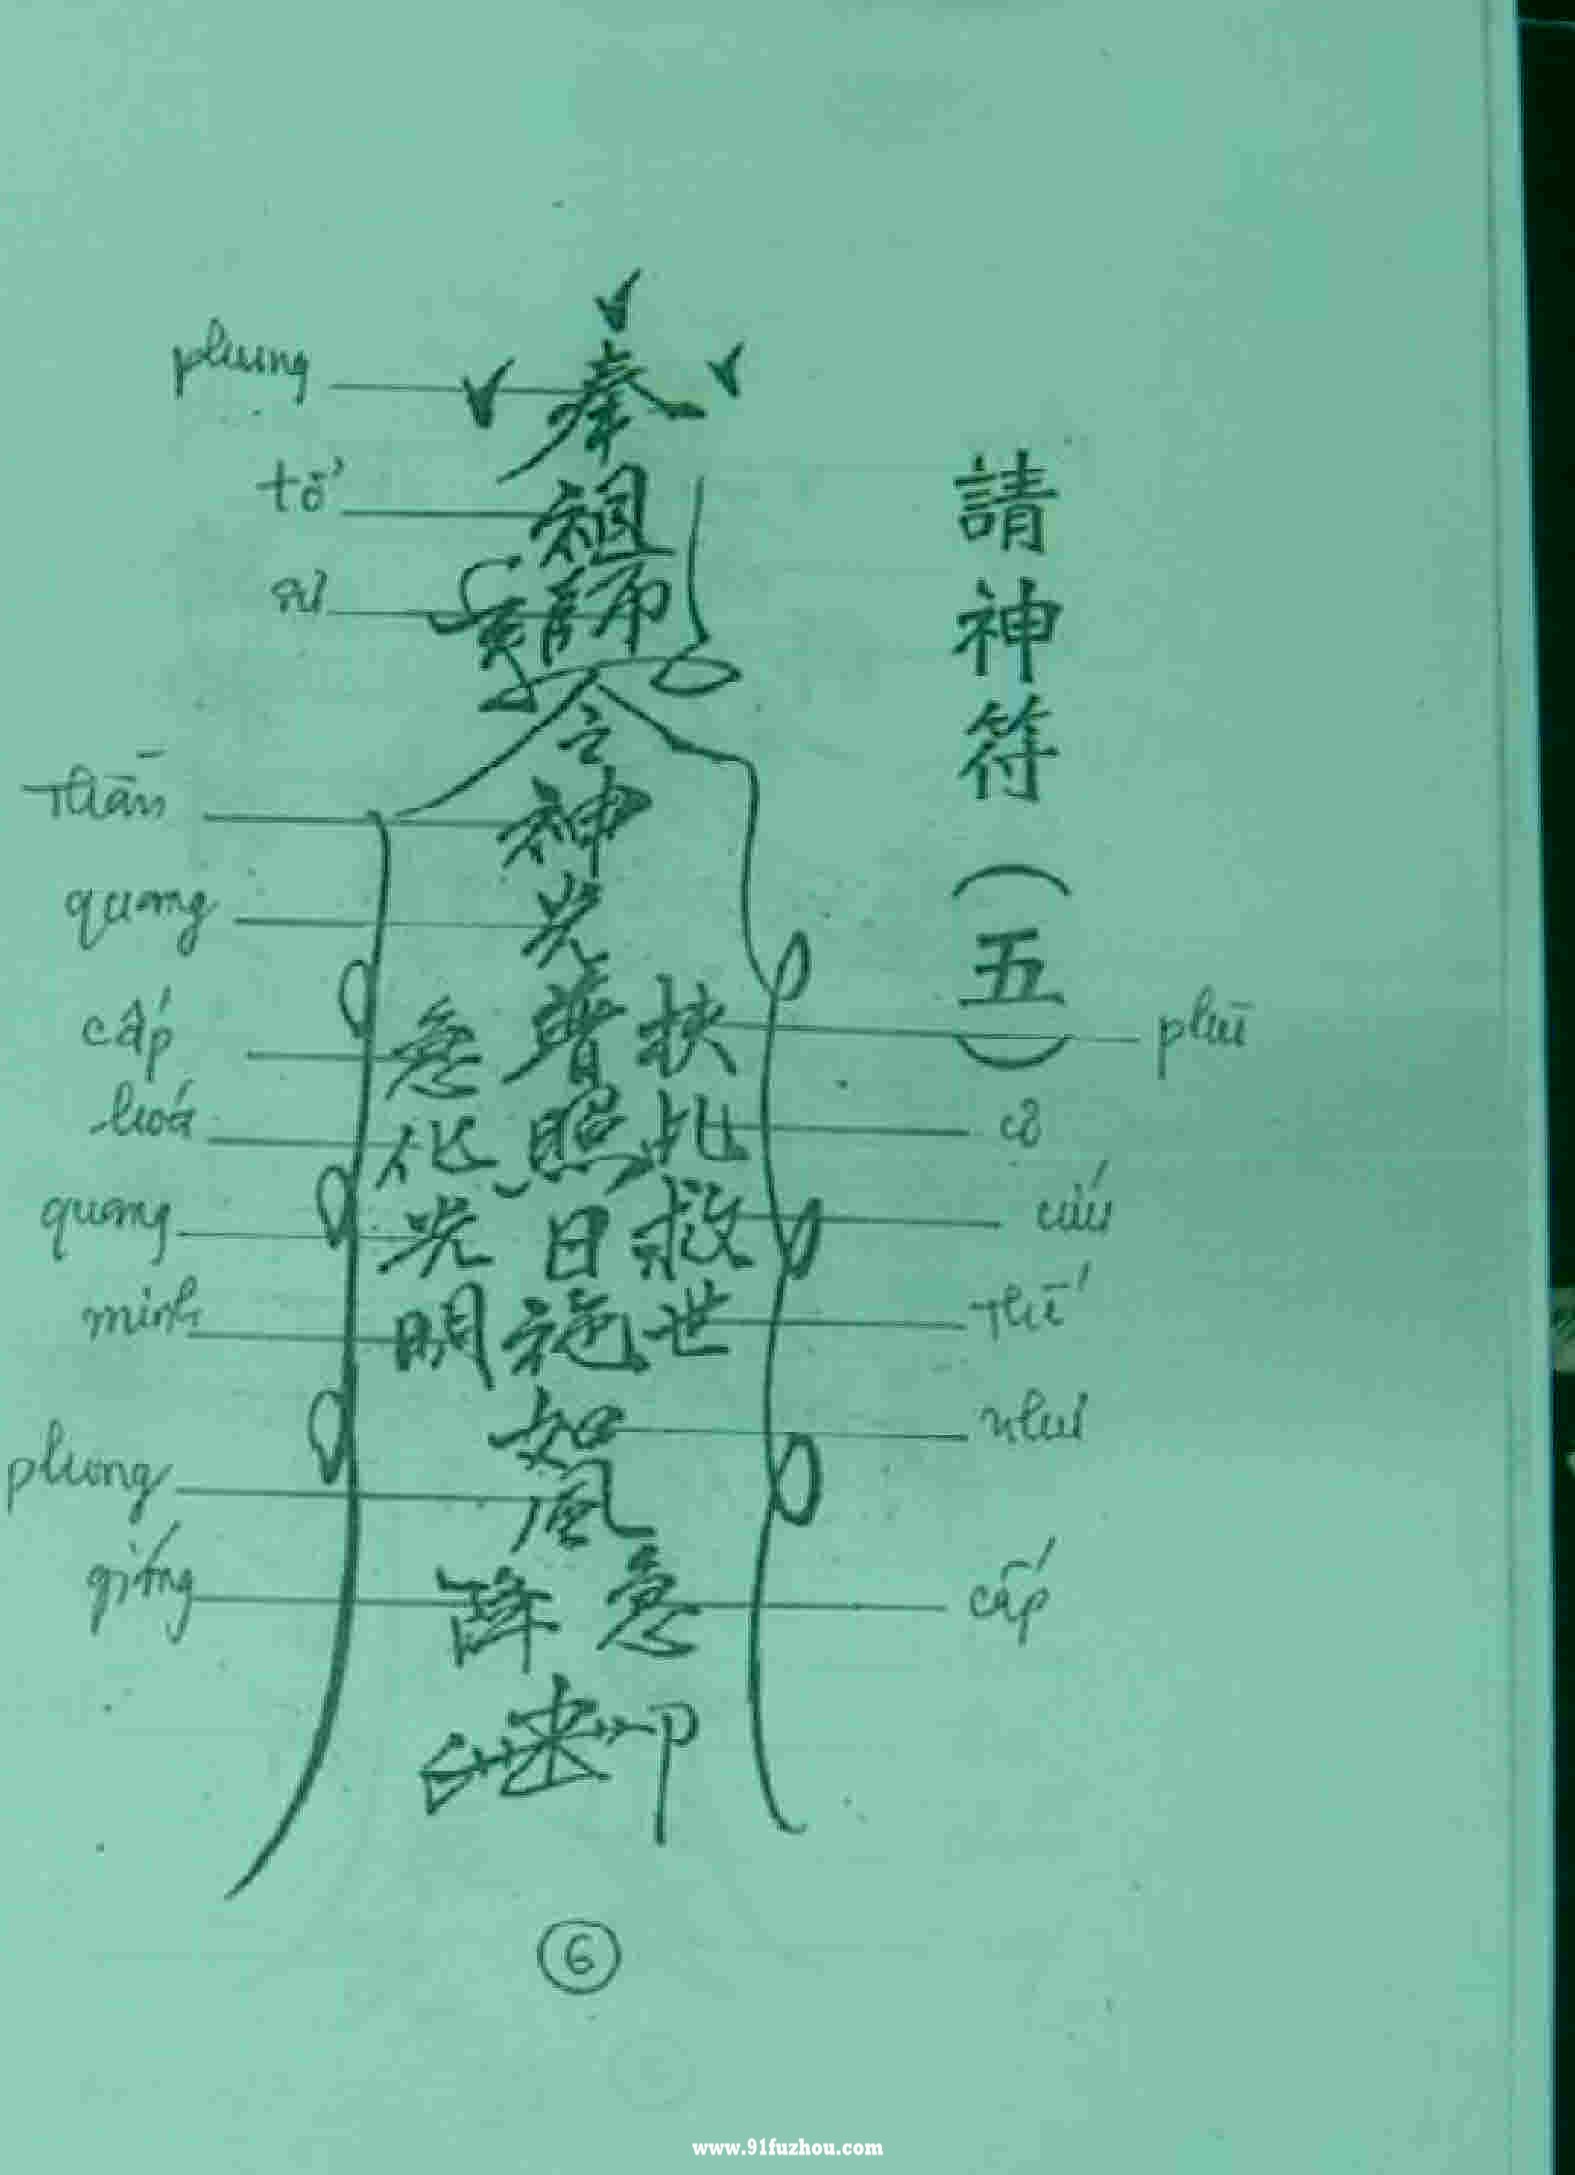 請神符（五）
phụng
奉
tổ
祖
sư
師
令
Thần
神
quang
光
普照日施
cấp
急
hoá
化
quang
光
minh
明
phù
扶
cơ
乩
cứu
救
thế
世
như
如
phong
風
giáng
降
cấp
急
6
www.91fuzhou.com